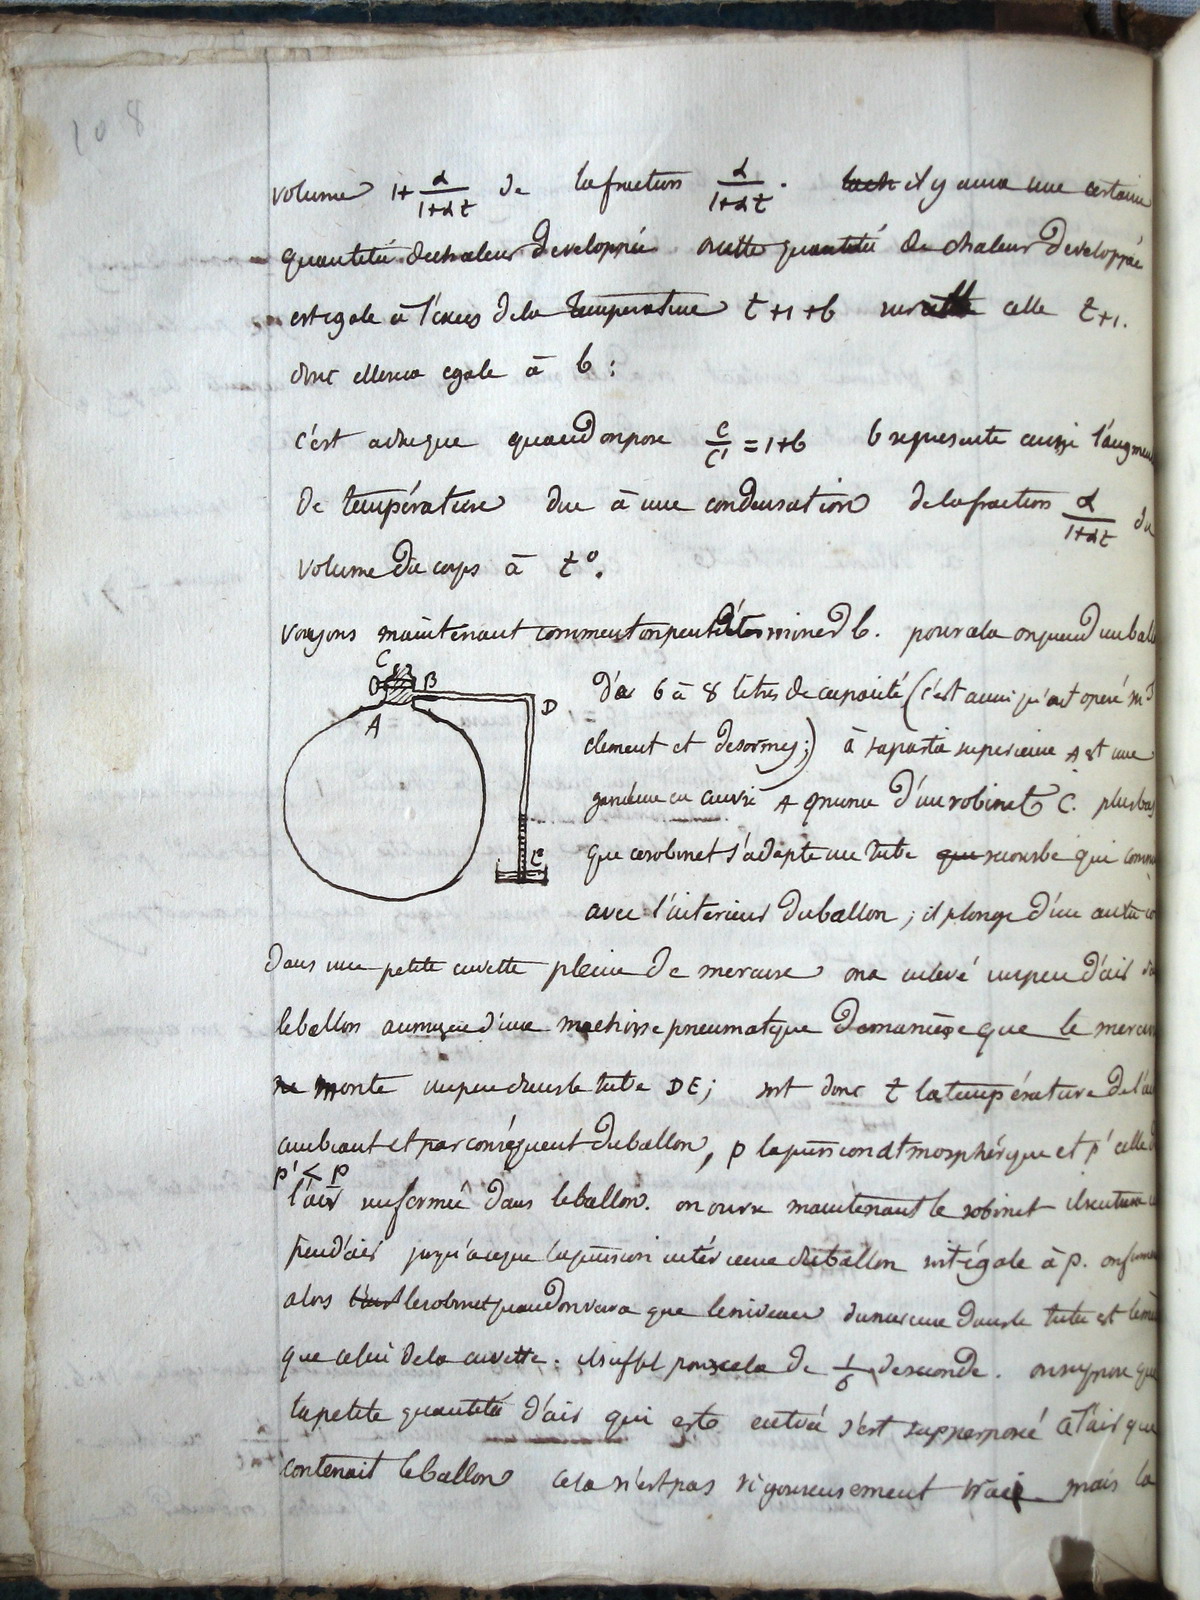 108
volume 1+ α/(1+αt) de la fraction α/(1+αt). il y aura une certaine
quantité de chaleur developpée cette quantité de chaleur developpée
est egale à l'exces de la temperature t+1+b sur celle t+1.
donc elle sera egale à b :
c'est a dire que quand on pose c/c' = 1+b b represente aussi l'augmen
de température due à une condensation de la fraction α/(1+αt) du
volume du corps à t°.
voyons maintenant comment on peut déterminer b. pour cela on prend un ball
C
B
D
A
E
de 6 à 8 litres de capacité (c'est ainsi qu'ont opéré mrs
clement et desormes;) à sa partie superieure A est une
garniture en cuivre A munie d'un robinet C. plus bas
que ce robinet s'adapte un tube que recourbé qui comm
avec l'interieur du ballon ; il plonge d'un autre co
dans une petite cuvette pleine de mercure on a enlevé un peu d'air da
le ballon au moyen d'une machine pneumatique de maniere que le mercu
monte un peu dans le tube DE ; soit donc t la température de l'air
ambiant et par conséquent du ballon, p la pression atmosphérique et p' celle d
p' < p
l'air renfermé dans le ballon. on ouvre maintenant le robinet il rentrera u
peu d'air jusqu'à ce que la pression intérieure du ballon soit égale à p. on ferme
alors le robinet quand on verra que le niveau du mercure dans le tube est le mê
que celui de la cuvette. il suffit pour cela de 1/6 de seconde. on suppose que
la petite quantité d'air qui est entrée s'est superposée à l'air que
contenait le ballon cela n'est pas rigoureusement vrai mais la